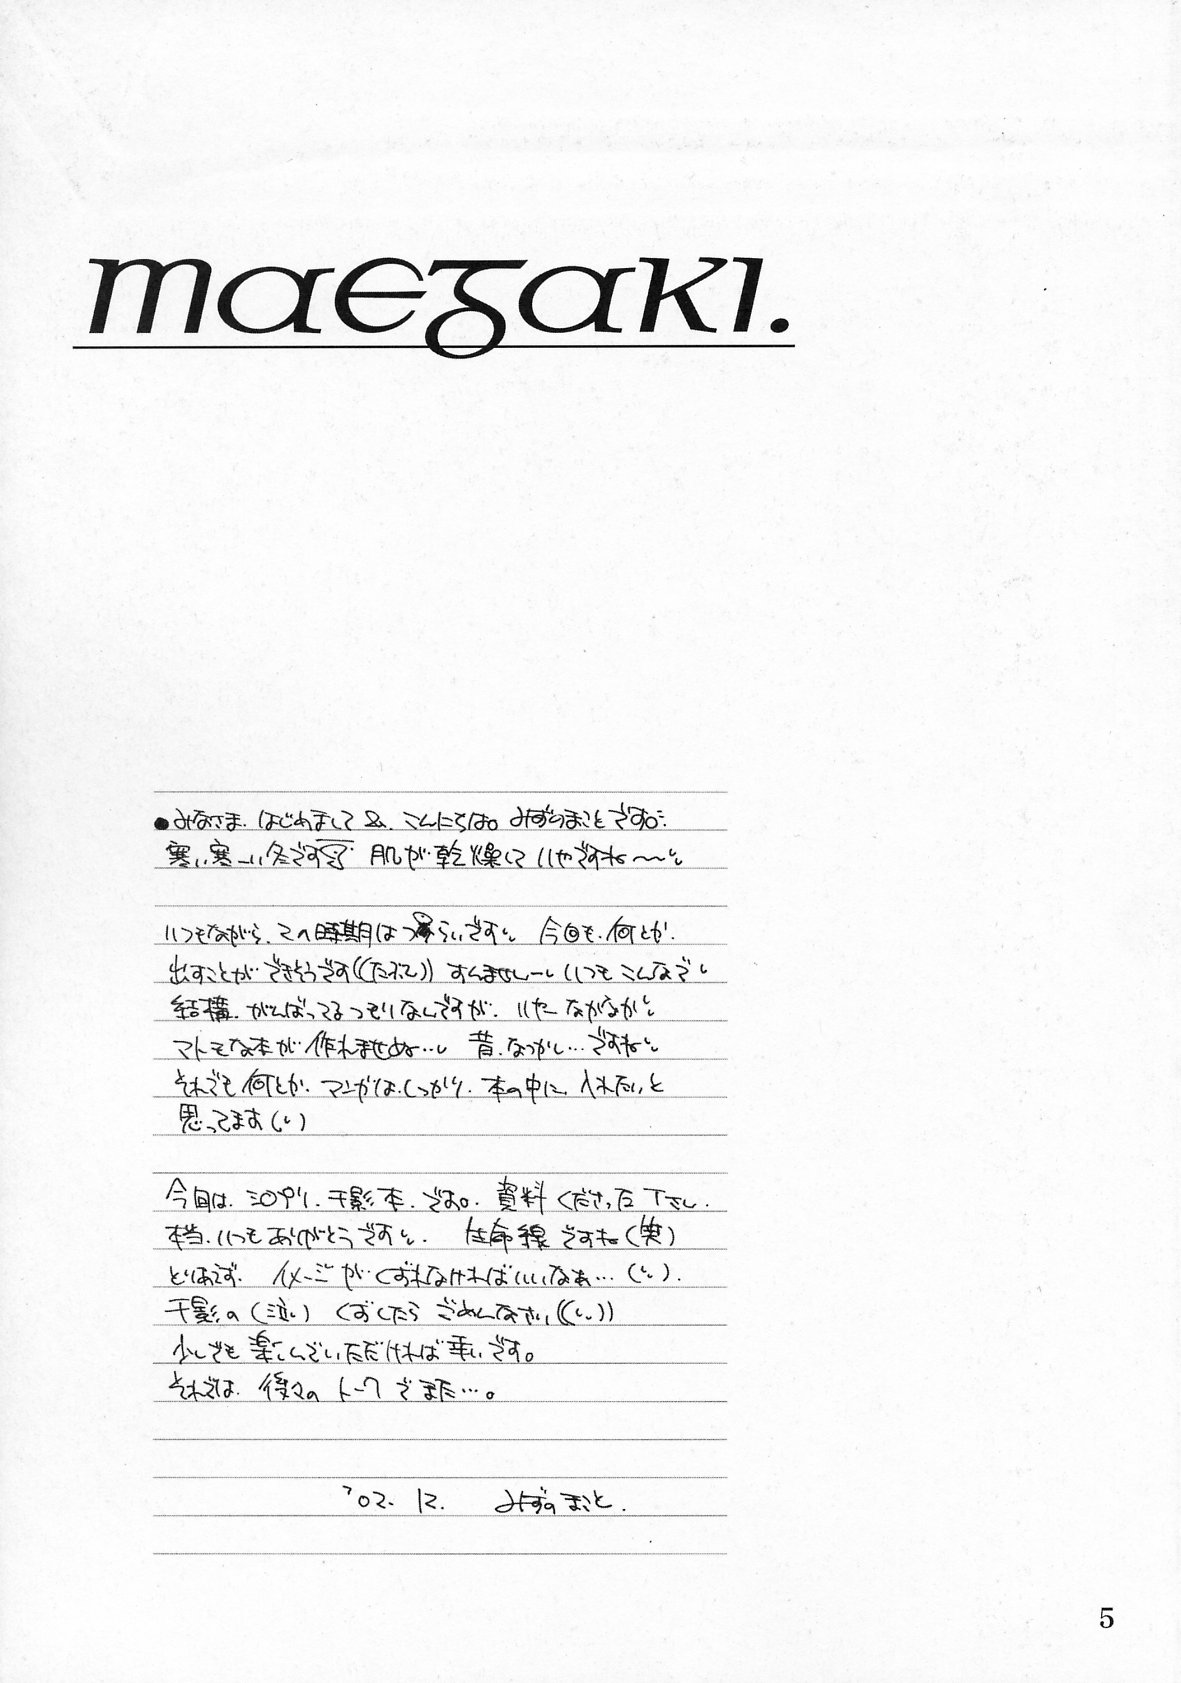 maegaki.
●みなさま はじめまして & こんにちは。みずのまことです。
寒い寒ーい冬です 肌が乾燥して いやですね〜〜
いつもながら、この時期は つらいです 今回も、何とか
出すことが できそうです((たぶん)) すんませんー いつも こんなで
結構、がんばってるつもりなんですが、いやー なかなか
マトモな本が 作れませぬ… 昔、なつかし…ですね
それでも 何とか マンガは、しっかり、本の中に 入れたいと
思ってます
今回は、シスプリ、千影本、です。資料 くださった 下さし、
本当、いつもありがとうです 生命線ですね(笑)
とりあえず、イメージが くずれなければ いいなぁ…
千影の(泣) くずしたら ごめんなさい
少しでも 楽しんでいただければ 幸いです。
それでは、後々の トークで また…。
'02. 12. みずの まこと.
5